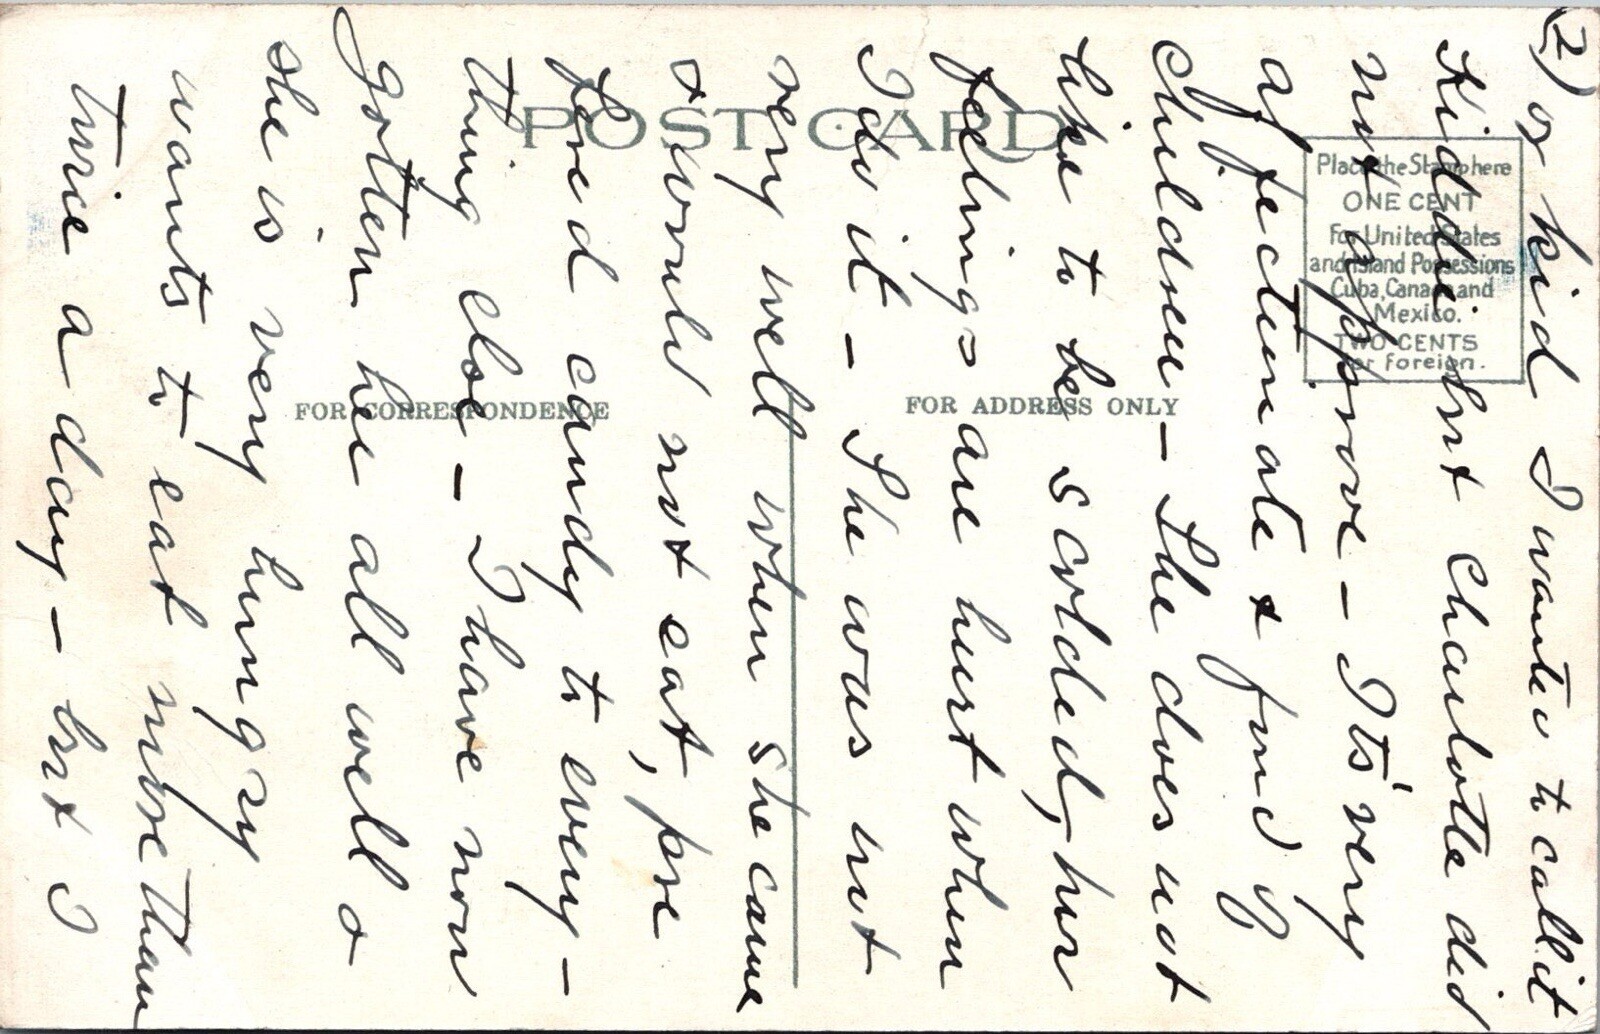 POST CARD
Place the Stamp here
ONE CENT
For United States
and Island Possessions
Cuba, Canada and
Mexico.
TWO CENTS
for Foreign.
FOR CORRESPONDENCE
FOR ADDRESS ONLY
(2) or kid I wanted to call it
Kiddie but Charlotte did
not approve - Its' very
affectionate & fond of
children - She does not
like to be scolded, her
feelings are hurt when
I do it - She was not
very well when she came
& would not eat, pre
fered candy to every-
thing else - I have now
gotten her all well &
she is very hungry
wants to eat more than
twice a day - but I